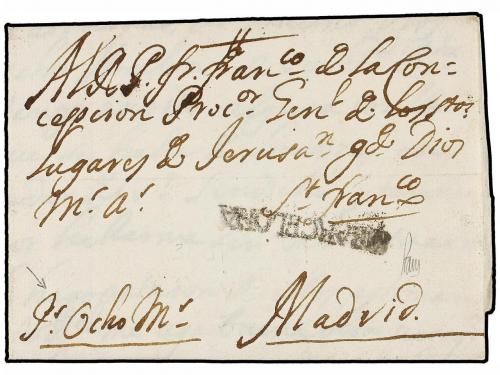 Al R P. fr. Franco de la Con=
cepcion Procor Genl de los Stos
lugares de Jerusan gde Dios
ms as
Sn Franco
MANCHA
Ps Ocho Ms
Madrid.